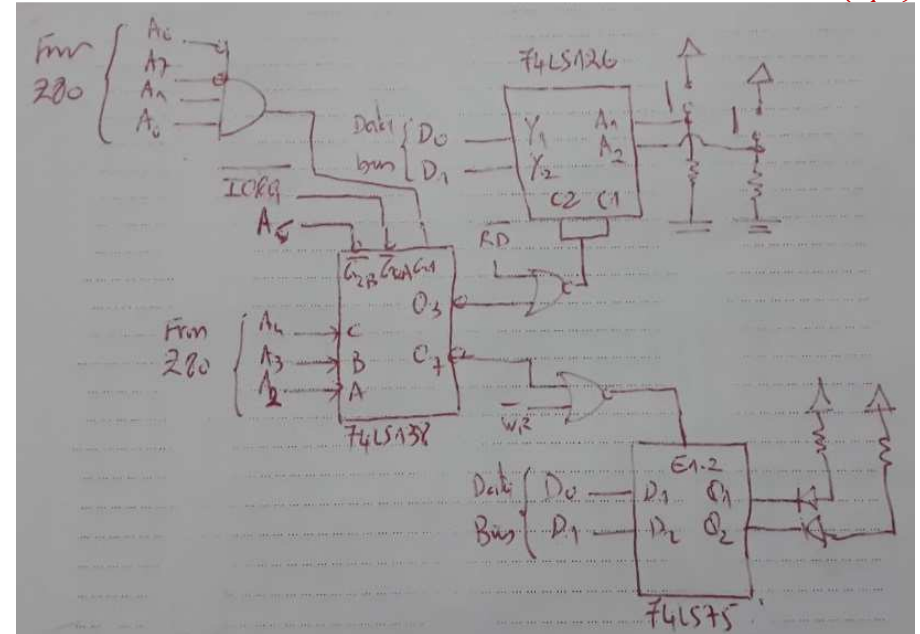 From
Z80
A6
A7
A1
A0
IORQ
A5
74LS126
Data
bus
D0
D1
Y1
Y2
A1
A2
C2 C1
RD
G2B G2A G1
From
Z80
A4
A3
A2
C
B
A
O3
O7
74LS138
WR
Data
Bus
D0
D1
E1-2
D1
D2
Q1
Q2
74LS75